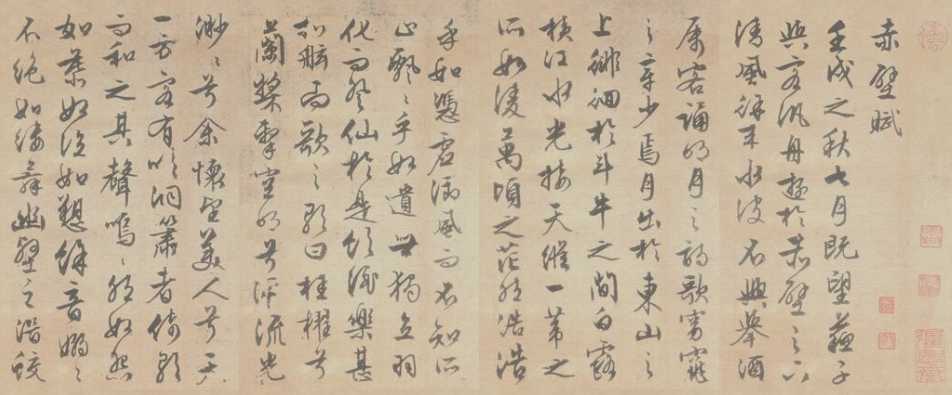 赤壁賦
壬戌之秋七月既望蘇子
與客汎舟遊於赤壁之下
清風徐来水波不興舉酒
属客誦明月之詩歌窈窕
之章少焉月出於東山之
上徘徊於斗牛之間白露
横江水光接天縱一葦之
所如凌萬頃之茫然浩浩
乎如憑虚御風而不知所
止飄々乎如遺世獨立羽
化而登仙於是飲酒樂甚
扣舷而歌之歌曰桂櫂兮
蘭槳擊空明兮泝流光
渺々兮余懷望美人兮天
一方客有吹洞簫者倚歌
而和之其聲嗚々然如怨
如慕如泣如愬餘音嫋々
不絶如縷舞幽壑之潜蛟